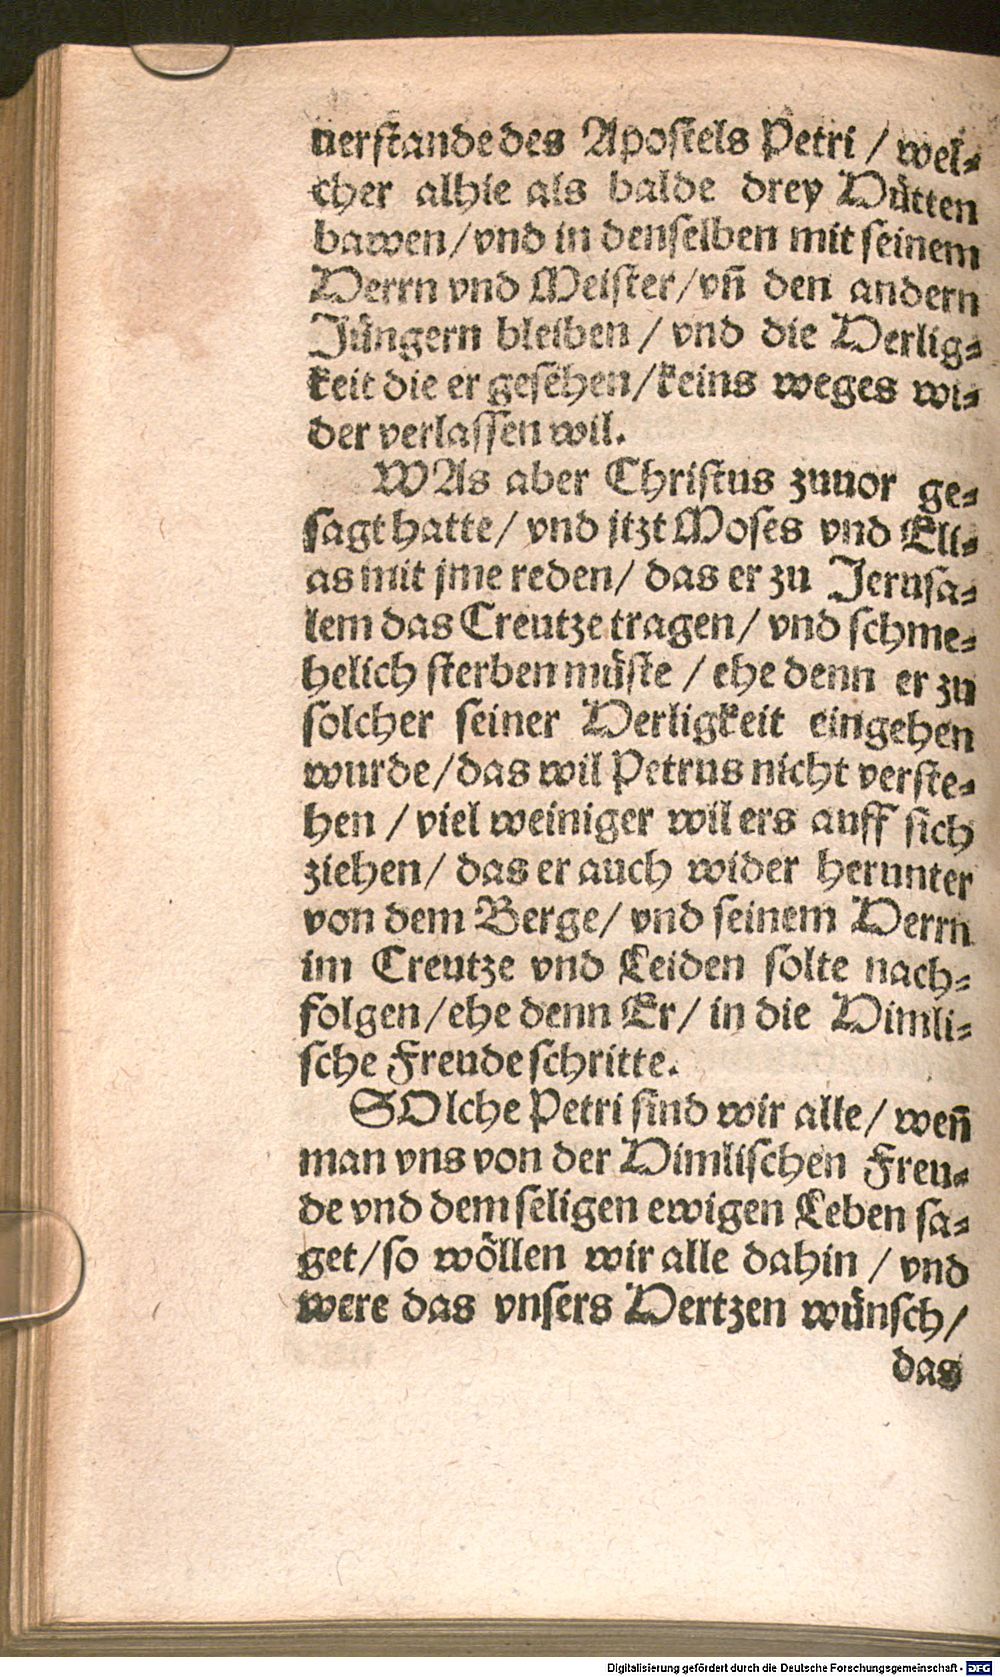 uerstande des Apostels Petri / wel⸗
cher alhie als balde drey Hütten
bawen / vnd in denselben mit seinem
Herrn vnd Meister / vñ den andern
Jüngern bleiben / vnd die Herlig⸗
keit die er gesehen / keins weges wi⸗
der verlassen wil.
WAs aber Christus zuuor ge⸗
sagt hatte / vnd jtzt Moses vnd Eli⸗
as mit jme reden / das er zu Jerusa⸗
lem das Creutze tragen / vnd schme⸗
helich sterben müste / ehe denn er zu
solcher seiner Herligkeit eingehen
wurde / das wil Petrus nicht verste⸗
hen / viel weiniger wil ers auff sich
ziehen / das er auch wider herunter
von dem Berge / vnd seinem Herrn
im Creutze vnd Leiden solte nach⸗
folgen / ehe denn Er / in die Himli⸗
sche Freude schritte.
SOlche Petri sind wir alle / weñ
man vns von der Himlischen Freu⸗
de vnd dem seligen ewigen Leben sa⸗
get / so wöllen wir alle dahin / vnd
were das vnsers Hertzen wünsch /
das
Digitalisierung gefördert durch die Deutsche Forschungsgemeinschaft - DFG